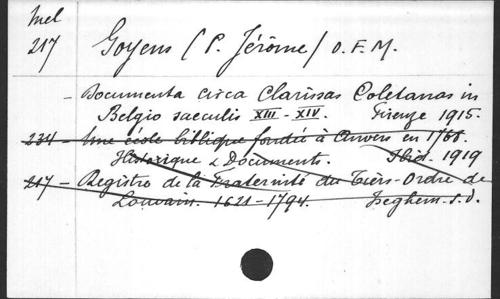 Mel
217
Goyens (P. Jérôme) O.F.M.
- Documenta circa Clarissas Coletanas in
Belgio saeculis XIII - XIV. Firenze 1915.
234 - Une école biblique fondée à Anvers en 1768.
Historique & Documents. Ibid. 1919
217 - Registro de la Fraternité du Tiers-Ordre de
Louvain. 1621-1794. Iseghem. s.d.